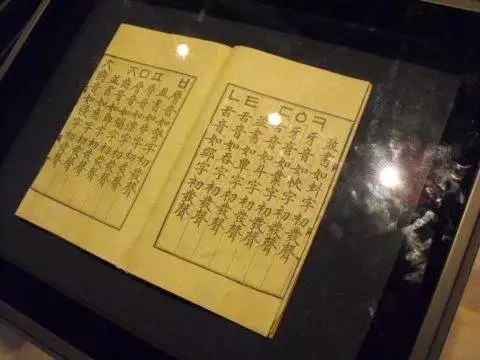 並書如虯字初發聲
ㅋ牙音如快字初發聲
ㆁ牙音如業字初發聲
ㄷ舌音如斗字初發聲
並書如覃字初發聲
ㅌ舌音如呑字初發聲
ㄴ舌音如那字初發聲
ㅂ脣音如彆字初發聲
並書如步字初發聲
ㅍ脣音如漂字初發聲
ㅁ脣音如彌字初發聲
ㅈ齒音如卽字初發聲
並書如慈字初發聲
ㅊ齒音如侵字初發聲